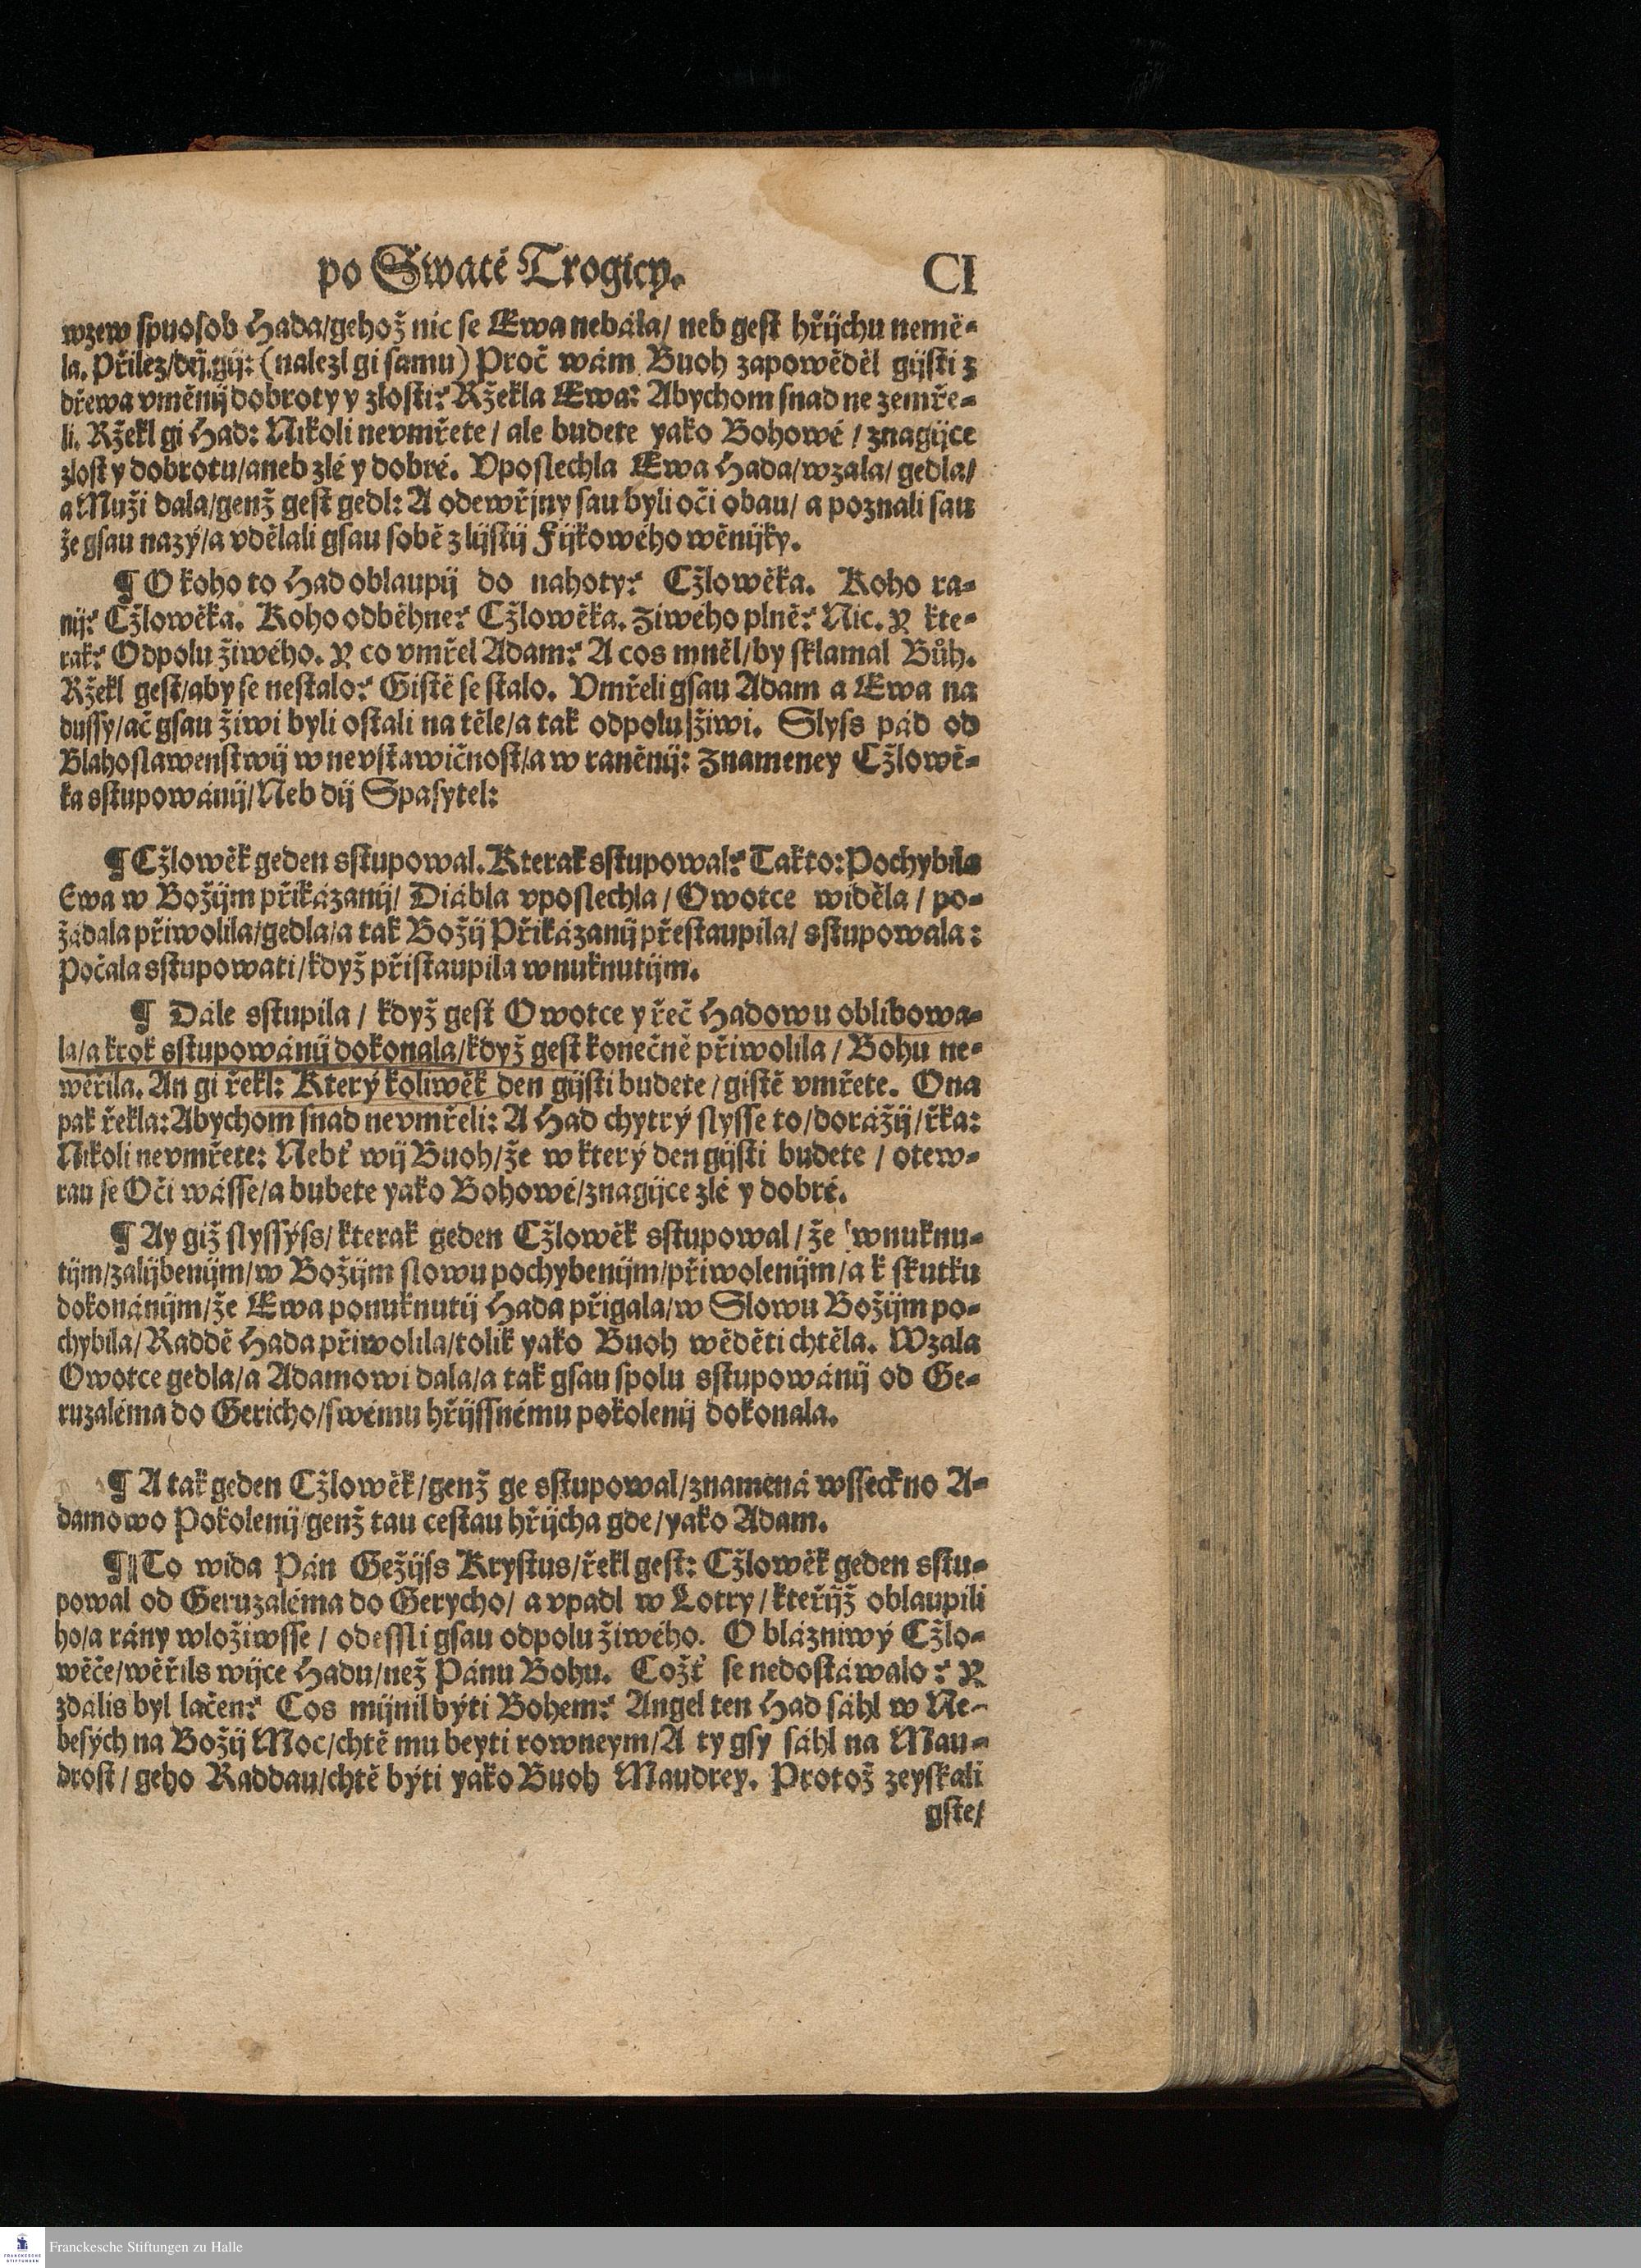 po Swaté Trogicy. CI
wzew spuosob Hada/gehož nic se Ewa nebála/ neb gest hřijchu nemě-
la. Přilez/dij gij: (nalezl gi samu) Proč wám Buoh zapowěděl gijsti z
dřewa vměnij dobroty y zlosti? Ržekla Ewa: Abychom snad ne zemře-
li. Ržekl gi Had: Nikoli nevmřete / ale budete yako Bohowé / znagijce
zlost y dobrotu/aneb zlé y dobré. Vposlechla Ewa Hada/wzala/ gedla/
a Muži dala/genž gest gedl: A odewřjny sau byli oči obau/ a poznali sau
že gsau nazý/a vdělali gsau sobě z lijstij Fijkowého wěnijky.
¶ O koho to Had oblaupij do nahoty? Cžlowěka. Koho ra-
nij? Cžlowěka. Koho odběhne? Cžlowěka. Ziwého plně? Nic. Y kte-
rak? Odpolu žiwého. Y co vmřel Adam? A cos mněl/by sklamal Bůh.
Ržekl gest/aby se nestalo? Gistě se stalo. Vmřeli gsau Adam a Ewa na
dussy/ač gsau žiwi byli ostali na těle/a tak odpolu žiwi. Slyss pád od
Blahoslawenstwij w nevstawičnost/a w raněnij: Znameney Cžlowě-
ka sstupowánij/Neb dij Spasytel:
¶ Cžlowěk geden sstupowal. Kterak sstupowal? Takto: Pochybila
Ewa w Božijm přikázanij/ Diábla vposlechla / Owotce widěla / po-
žádala přiwolila/gedla/a tak Božij Přikázanij přestaupila/ sstupowala:
Počala sstupowati/když přistaupila wnuknutijm.
¶ Dále sstupila / když gest Owotce y řeč Hadowu oblibowa-
la/a krok sstupowánij dokonala/když gest konečně přiwolila / Bohu ne-
wěřila. An gi řekl: Který koliwěk den gijsti budete / gistě vmřete. Ona
pak řekla: Abychom snad nevmřeli: A Had chytrý slysse to/dorážij/řka:
Nikoli nevmřete: Nebť wij Buoh/že w který den gijsti budete / otew-
rau se Oči wásse/a bubete yako Bohowé/znagijce zlé y dobré.
¶ Ay giž slyssýss/ kterak geden Cžlowěk sstupowal / že wnuknu-
tijm/zalijbenijm/w Božijm slowu pochybenijm/přiwolenijm/a k skutku
dokonánijm/že Ewa ponuknutij Hada přigala/w Slowu Božijm po-
chybila/Raddě Hada přiwolila/tolik yako Buoh wěděti chtěla. Wzala
Owotce gedla/a Adamowi dala/a tak gsau spolu sstupowánij od Ge-
ruzaléma do Gericho/swému hřijssnému pokolenij dokonala.
¶ A tak geden Cžlowěk/genž ge sstupowal/znamená wsseckno A-
damowo Pokolenij/genž tau cestau hřijcha gde/yako Adam.
¶ To wida Pán Gežijss Krystus/řekl gest: Cžlowěk geden sstu-
powal od Geruzaléma do Gerycho/ a vpadl w Lotry / kteřijž oblaupili
ho/a rány wložiwsse / odessli gsau odpolu žiwého. O blázniwý Cžlo-
wěče/wěřils wijce Hadu/než Pánu Bohu. Cožť se nedostáwalo? Y
zdalis byl lačen? Cos mijnil býti Bohem? Angel ten Had sáhl w Ne-
besých na Božij Moc/chtě mu beyti rowneym/A ty gsy sáhl na Mau-
drost / geho Raddau/chtě býti yako Buoh Maudrey. Protož zeyskali
gste/
Franckesche Stiftungen zu Halle